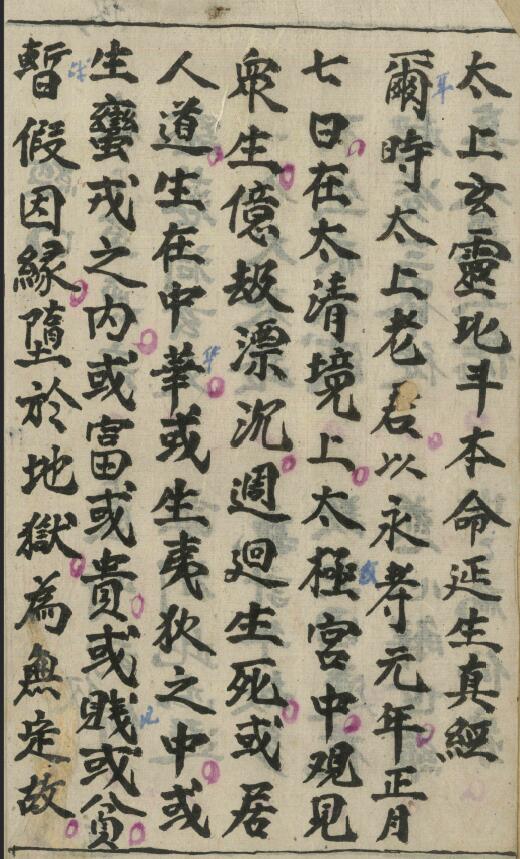 太上玄靈北斗本命延生真經
爾時太上老君以永壽元年正月
七日在太清境上太極宮中观見
衆生億劫漂沉週迴生死或居
人道生在中華或生夷狄之中或
生蠻戎之内或富或貴或賤或貧
暫假因緣墮於地獄為無定故